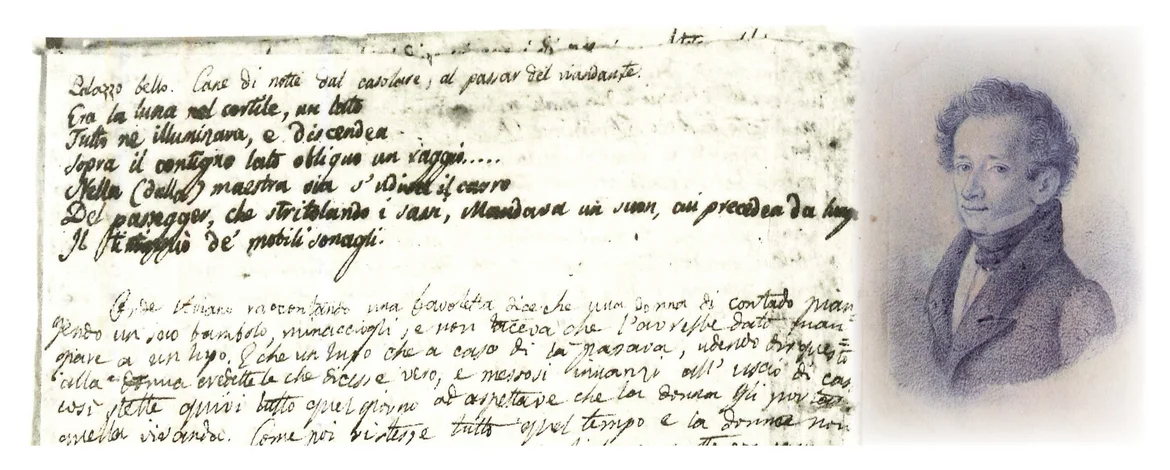 Palazzo bello. Cane di notte dal casolare, al passar del viandante.
Era la luna nel cortile, un lato
Tutto ne illuminava, e discendea
Sopra il contiguo lato obliquo un raggio.....
Nella (dalla) maestra via s'udiva il carro
Del passegger, che stritolando i sassi, Mandava un suon, cui precedea da lungi
Il tintinnìo de' mobili sonagli.
raccontando una favoletta dice che una donna di contado pian-
gendo un suo bambolo, minacciògli, e non taceva che l'avrebbe dato man-
giare a un lupo. E che un lupo che a caso di là passava, udendo dir questo
alla donna credettele che dicesse vero, e messosi innanzi all'uscio di casa
così stette quivi tutto quel giorno ad aspettare che la donna gli portasse
quella vivanda. Come poi vi stesse tutto quel tempo e la donna non